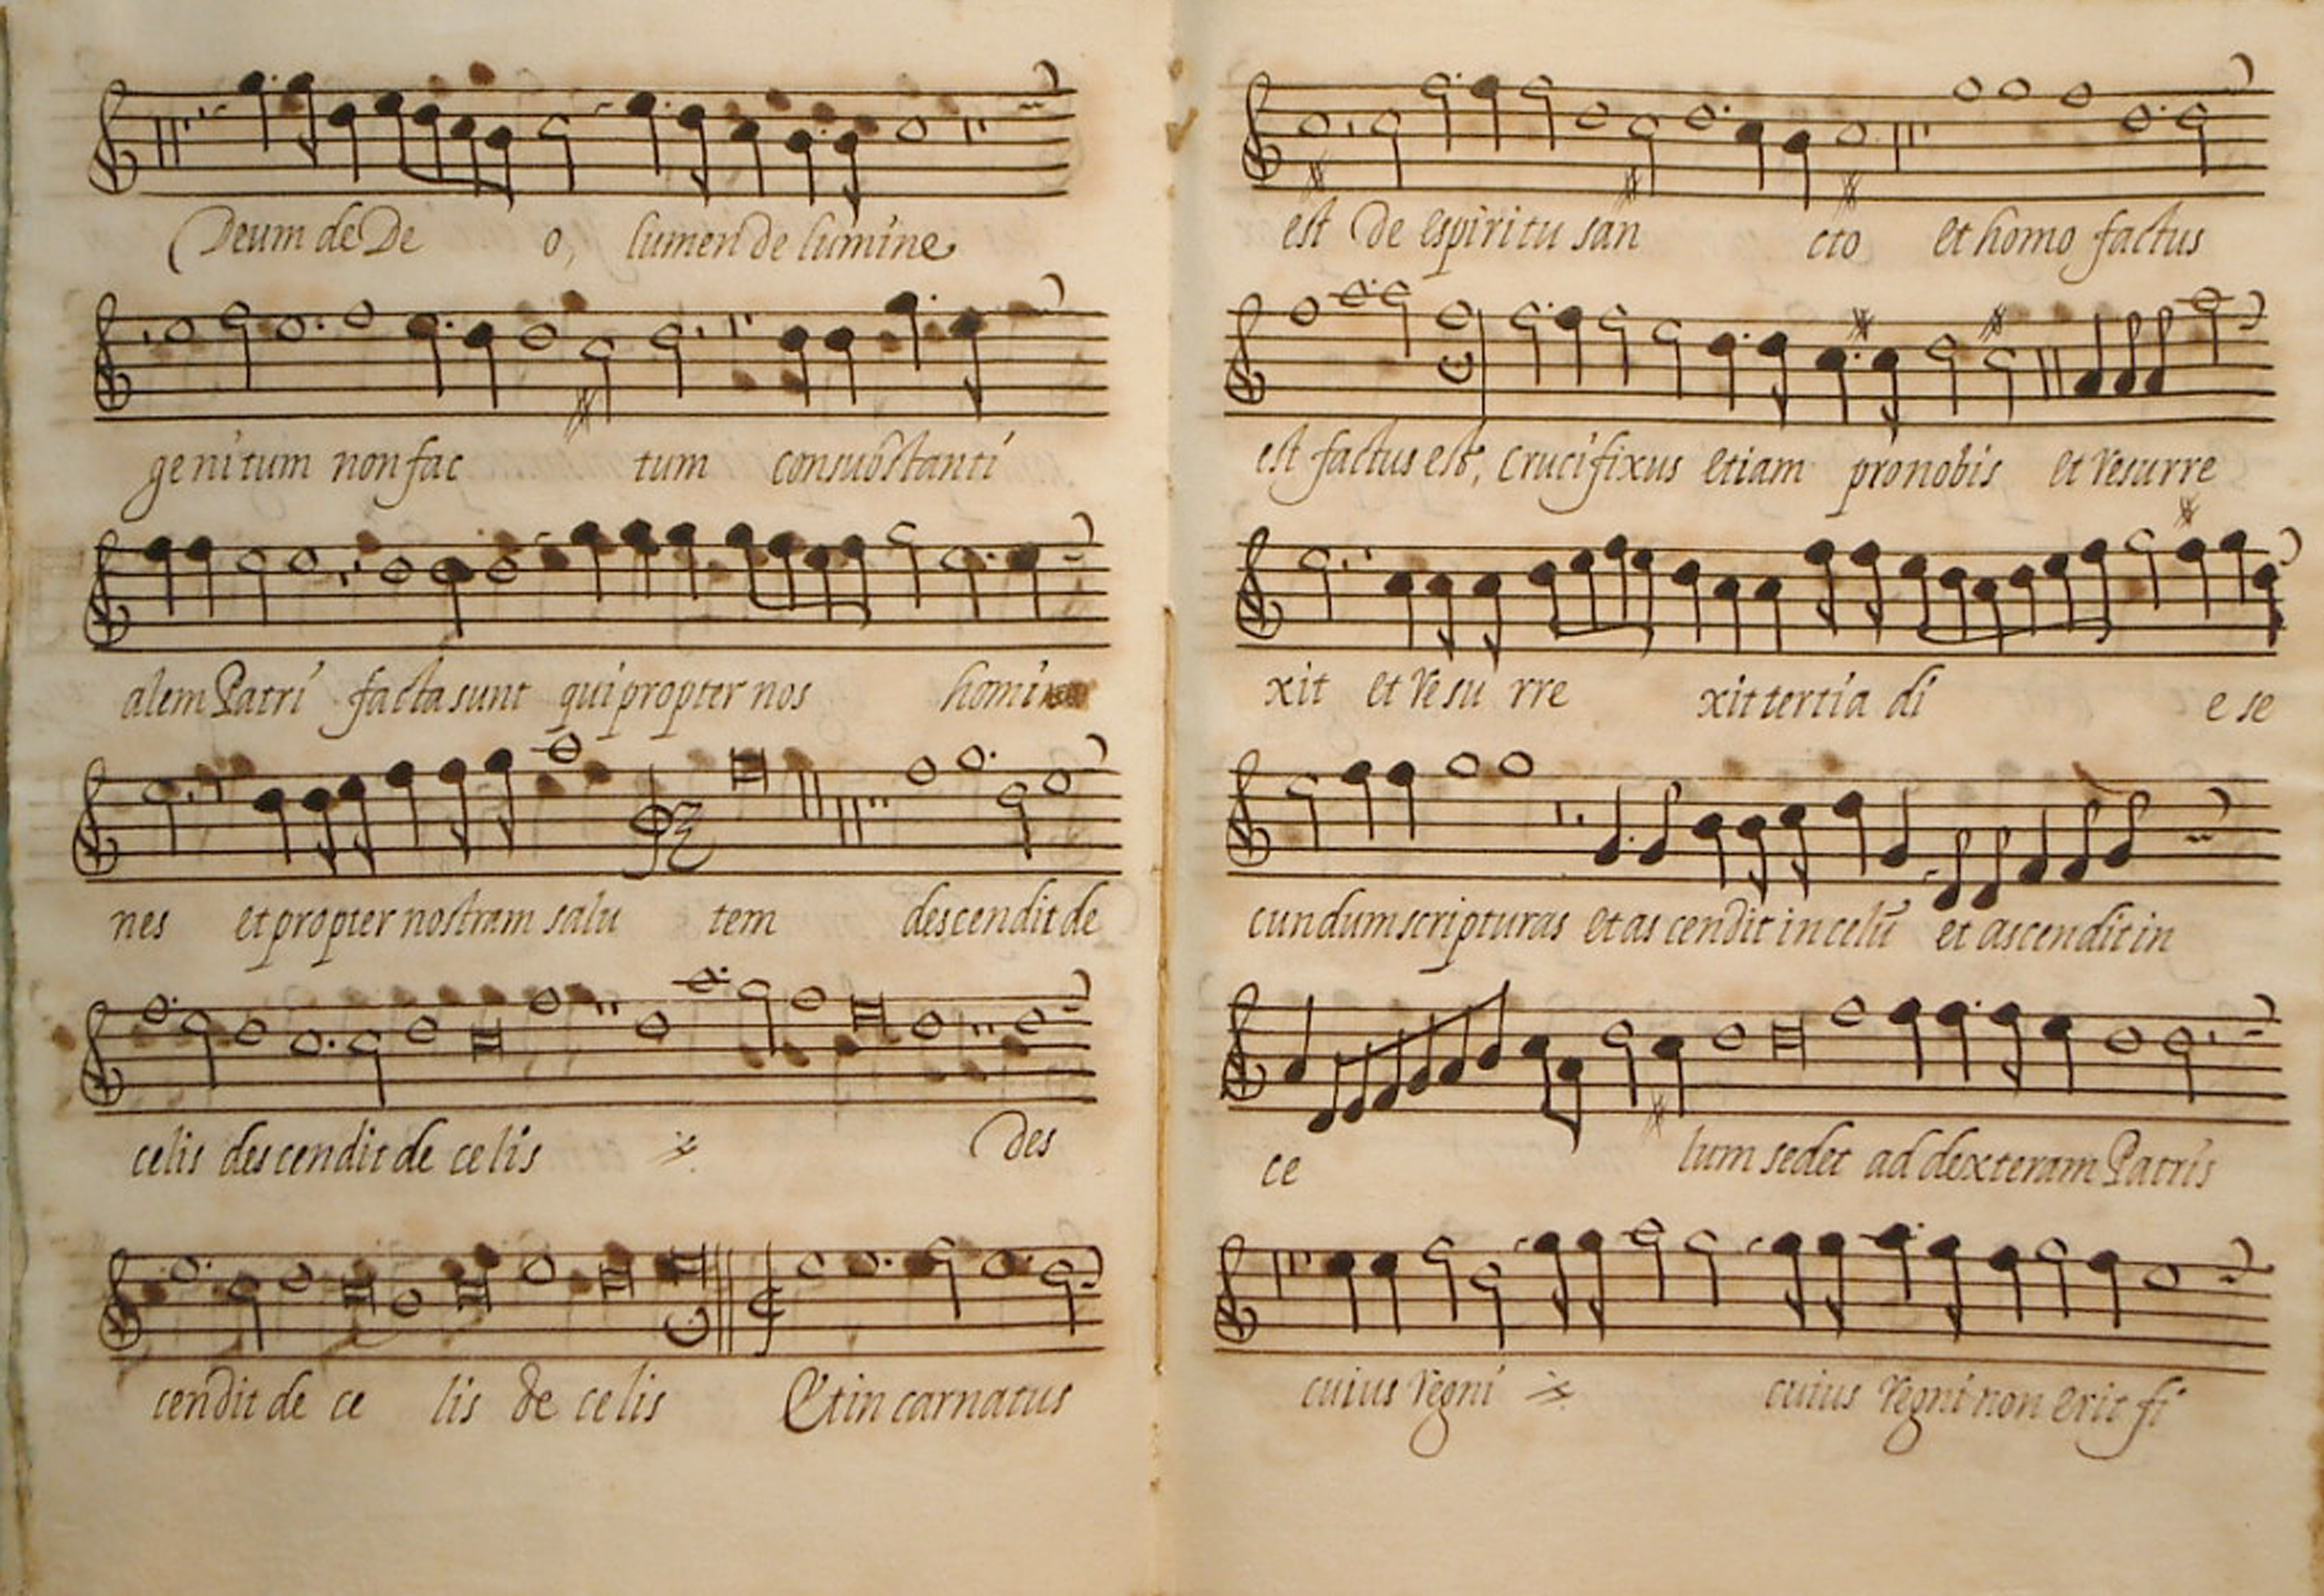 Deum de De o, lumen de lumine
genitum non fac tum consubstanti
alem Patri facta sunt qui propter nos homi
nes et propter nostram salu tem descendit de
celis descendit de celis des
cendit de ce lis de celis Et in carnatus
est de espiritu san cto et homo factus
est factus est, crucifixus etiam pro nobis et resurre
xit et resu rre xit tertia di e se
cundum scripturas et as cendit in celũ et ascendit in
ce lum sedet ad dexteram Patris
cuius regni cuius regni non erit fi